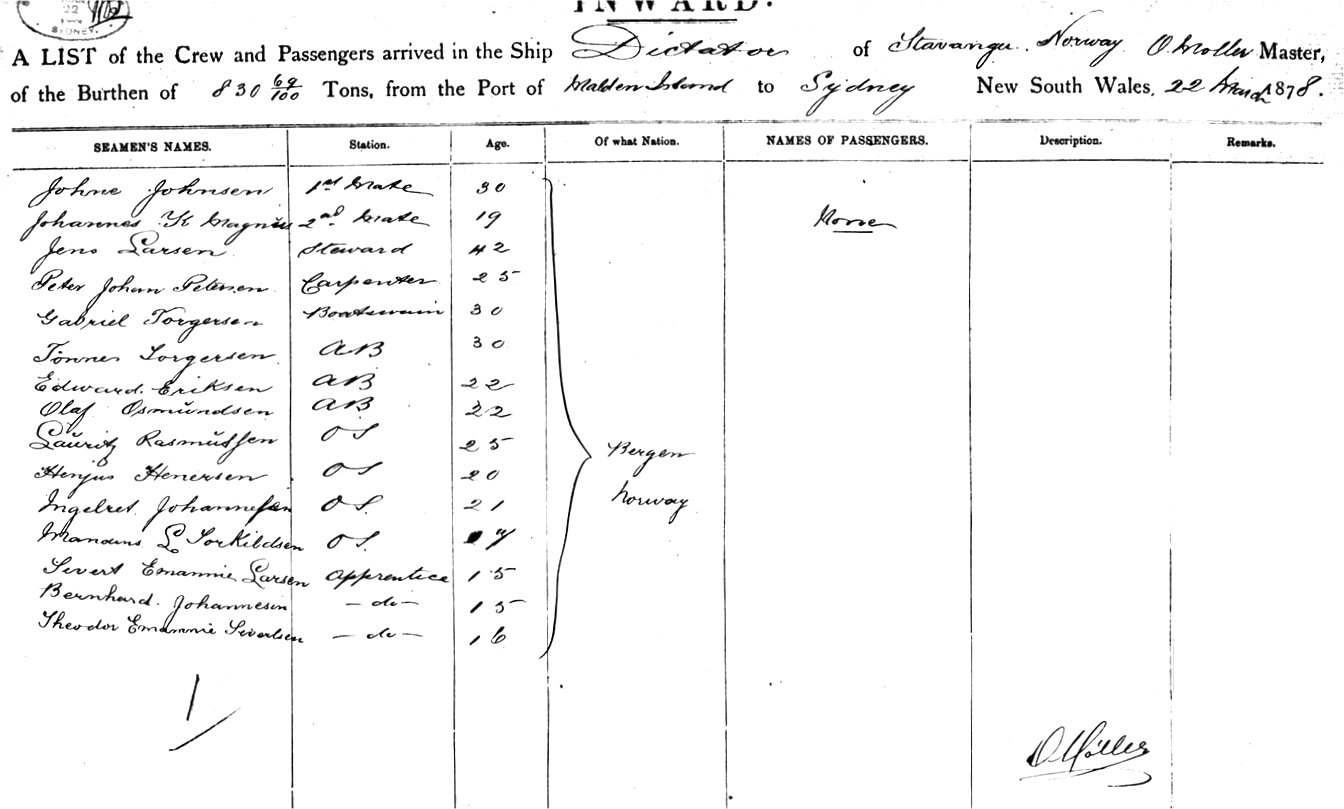 INWARD.
22
SYDNEY.
A LIST of the Crew and Passengers arrived in the Ship Dictator of Stavanger Norway O Moller Master,
of the Burthen of 830 69/100 Tons, from the Port of Malden Island to Sydney New South Wales, 22 March 1878.
SEAMEN'S NAMES. Station. Age. Of what Nation. NAMES OF PASSENGERS. Description. Remarks.
Johne Johnsen 1st Mate 30
Johannes K Magnus 2nd Mate 19 None
Jens Larsen Steward 42
Peter Johan Petersen Carpenter 25
Gabriel Torgersen Boatswain 30
Tönnes Torgersen AB 30
Edward Eriksen AB 22
Olaf Osmundsen AB 22
Lauritz Rasmussen OS 25
Bergen
Henjus Henersen OS 20
Norway
Ingelret Johannesen O.S. 21
L Torkildsen OS. 17
Sivert Emannie Larsen Apprentice 15
Bernhard Johannesen — do — 15
Theodor Emannie Sivertsen — do — 16
1
O Möller